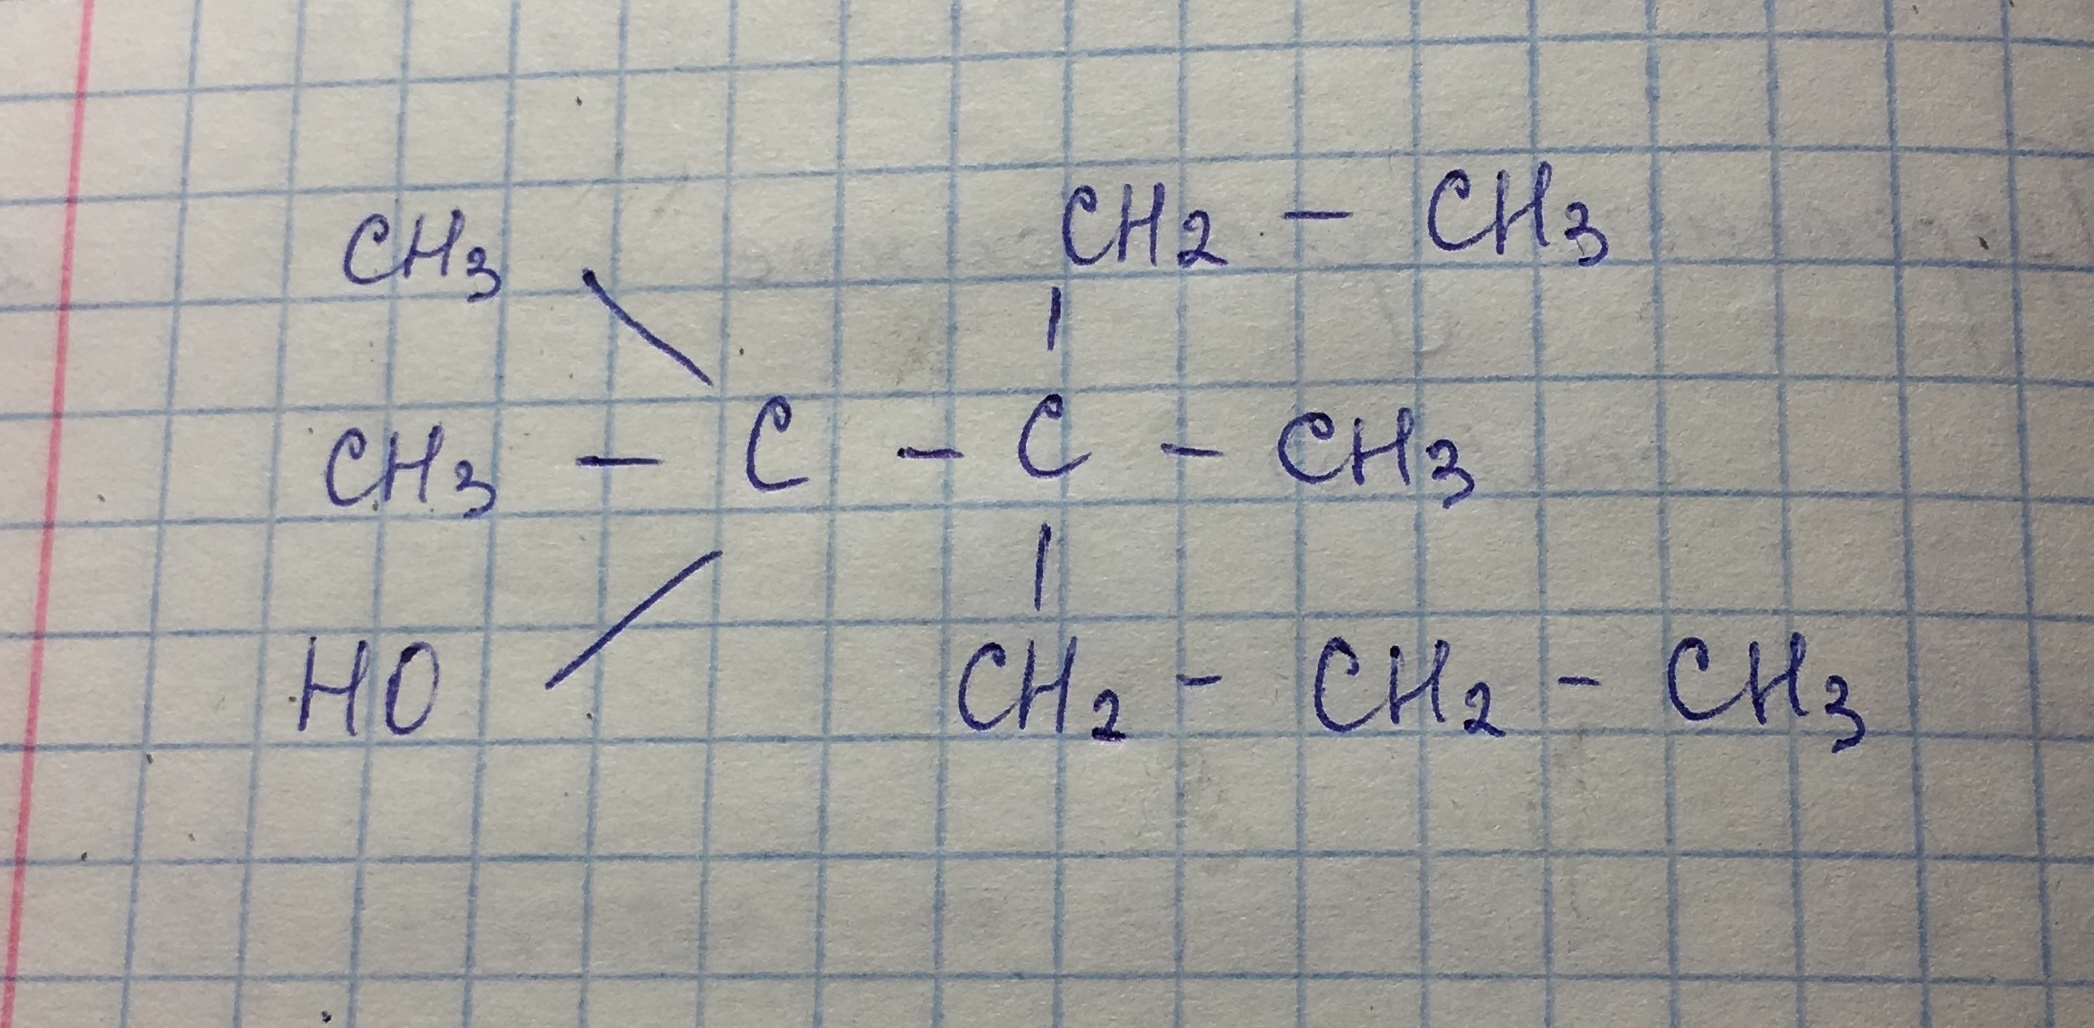 CH2 - CH3
CH3
CH3 - C - C - CH3
HO CH2 - CH2 - CH3